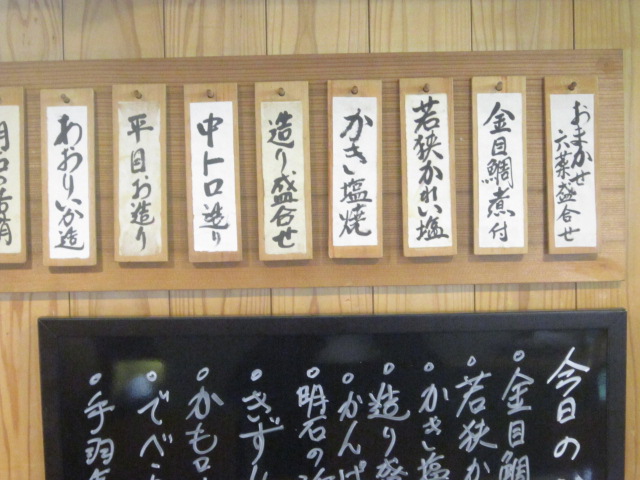 おまかせ
六菜盛合せ
金目鯛煮付
若狭かれい塩
かきい塩焼
造り盛合せ
中トロ造り
平目お造り
あおりいか造
今日の
・金目鯛
・若狭か
・かきい塩
・造り盛
・かんぱ
・明石の
・きずし
・かもロ
・でべ
・手羽